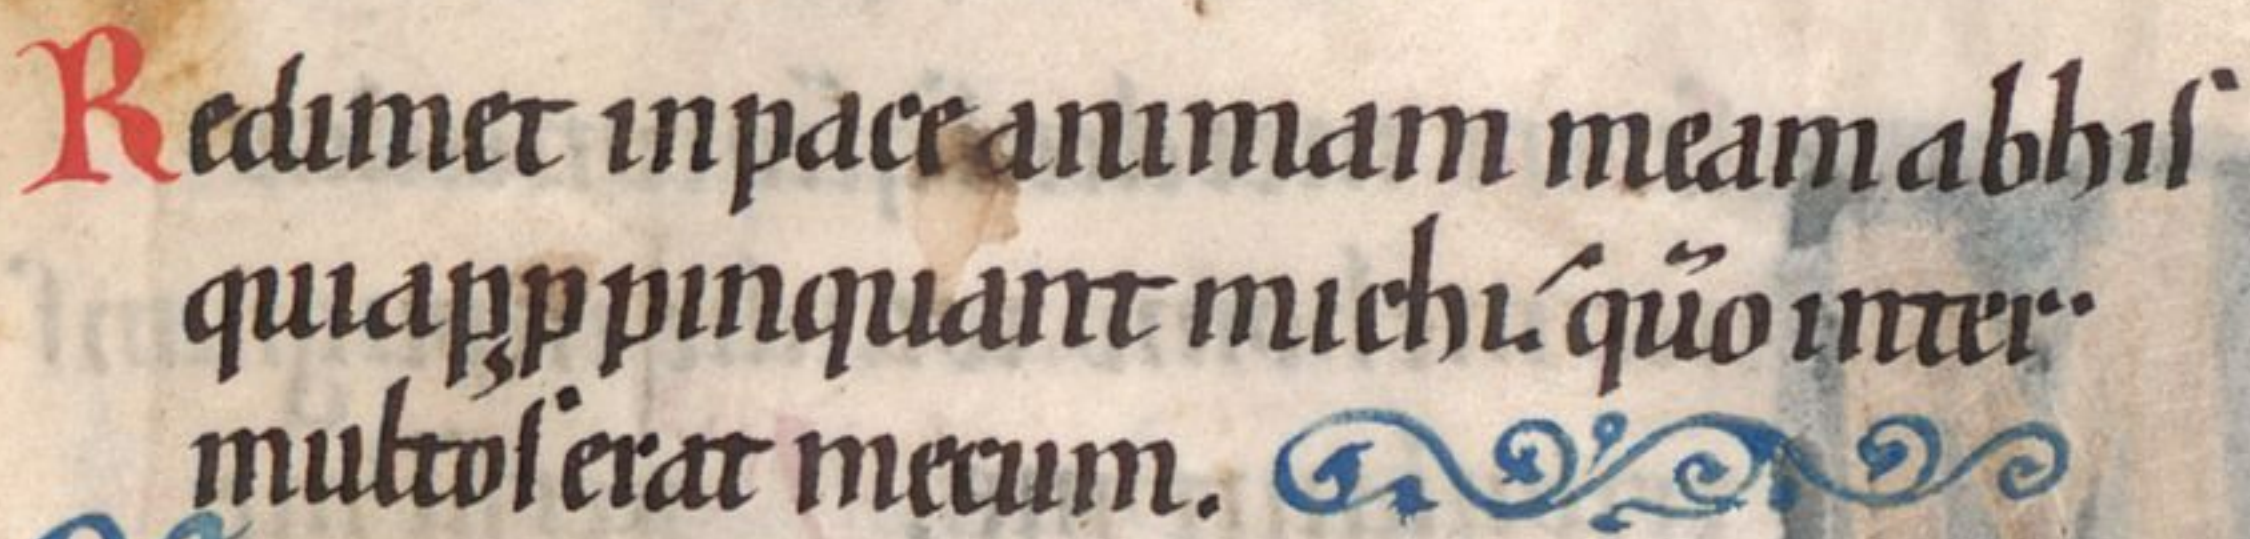 Redimet inpace animam meam abhis
quiaꝓppinquant michi. qūo inter
multos erat mecum.